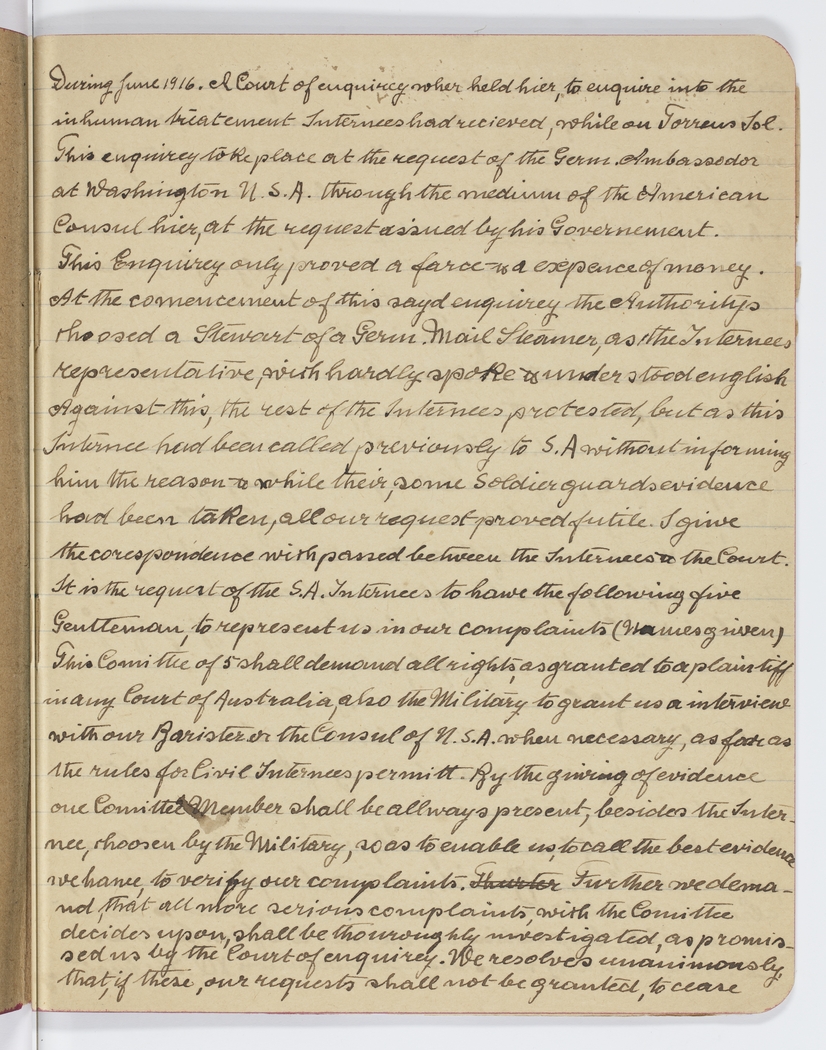 During June 1916. A Court of enquirey wher held hier, to enquire into the
inhuman treatement Internees had recieved, while on Torrens Isl.
This enquirey toke place at the request of the Germ. Ambassador
at Washington U.S.A. through the medium of the American
Consul hier, at the request assued by his Governement.
This Enquirey only proved a farce & a expence of money.
At the comencement of this sayd enquirey the Authoritys
choosed a Stewart of a Germ. Mail Steamer, as the Internees
representative, wich hardly spoke & understood english
Against this, the rest of the Internees protested, but as this
Internee had been called previously to S.A without informing
him the reason & while their, some Soldier guards evidence
had been taken, all our request proved futile. I give
the corespondence wich passed between the Internees & the Court.
It is the request of the S.A. Internees to hawe the following five
Gentteman, to represent us in our complaints (Names given)
This Comittee of 5 shall demand all rights, as granted to a plaintiff
in any Court of Australia, also the Military to grant us a interview
with our Barister or the Consul of U.S.A. when necessary, as far as
the rules for Civil Internees permitt. By the giwing of evidence
one Comittee Member shall be allways present, besides the Inter-
nee, choosen by the Military, so as to enable us, to call the best evidence
we hawe, to verify our complaints. Thurter Further we dema-
nd, that all more serious complaints, wich the Comittee
decides upon, shall be thouroughly investigated, as promis-
sed us by the Court of enquirey. We resolves unanimously
that, if these, our requests shall not be granted, to cease